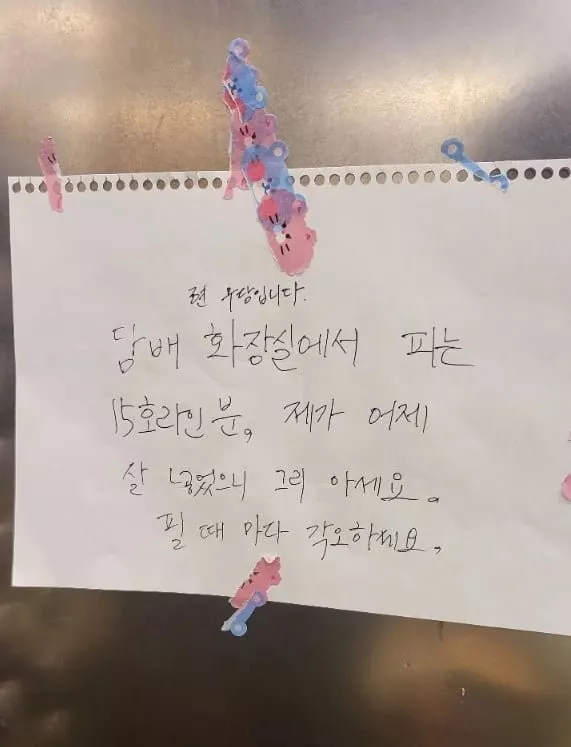 전 무당입니다.
담배 화장실에서 피는
15호라인 분, 제가 어제
살 넣었으니 그리 아세요.
필 때 마다 각오하세요,